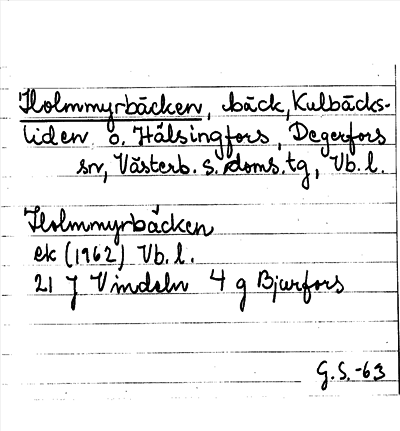 Holmmyrbäcken, bäck, Kulbäcks-
liden o. Hälsingfors, Degerfors
sn, Västerb. s. doms. tg, Vb. l.
Holmmyrbäcken
ek (1962) Vb. l.
21 J Vindeln 4 g Bjurfors
G.S.-63